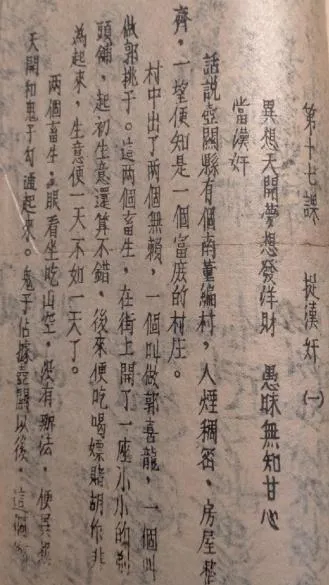 第十七課　捉漢奸㈠
異想天開夢想發洋財　愚昧無知甘心
當漢奸
話説壺關縣有個南董編村，人煙稠密、房屋整
齊，一望便知是一個富庶的村庄。
村中出了两個無賴，一個叫做郭喜龍，一個叫
做郭挑子。這两個畜生，在街上開了一座小小的剃
頭舖，起初生意還算不錯，後來便吃喝嫖賭胡作非
為起來，生意便一天不如一天了。
两個畜生，眼看坐吃山空，沒有辦法，便異想
天開和鬼子勾通起來。鬼子佔據壺關以後，這個